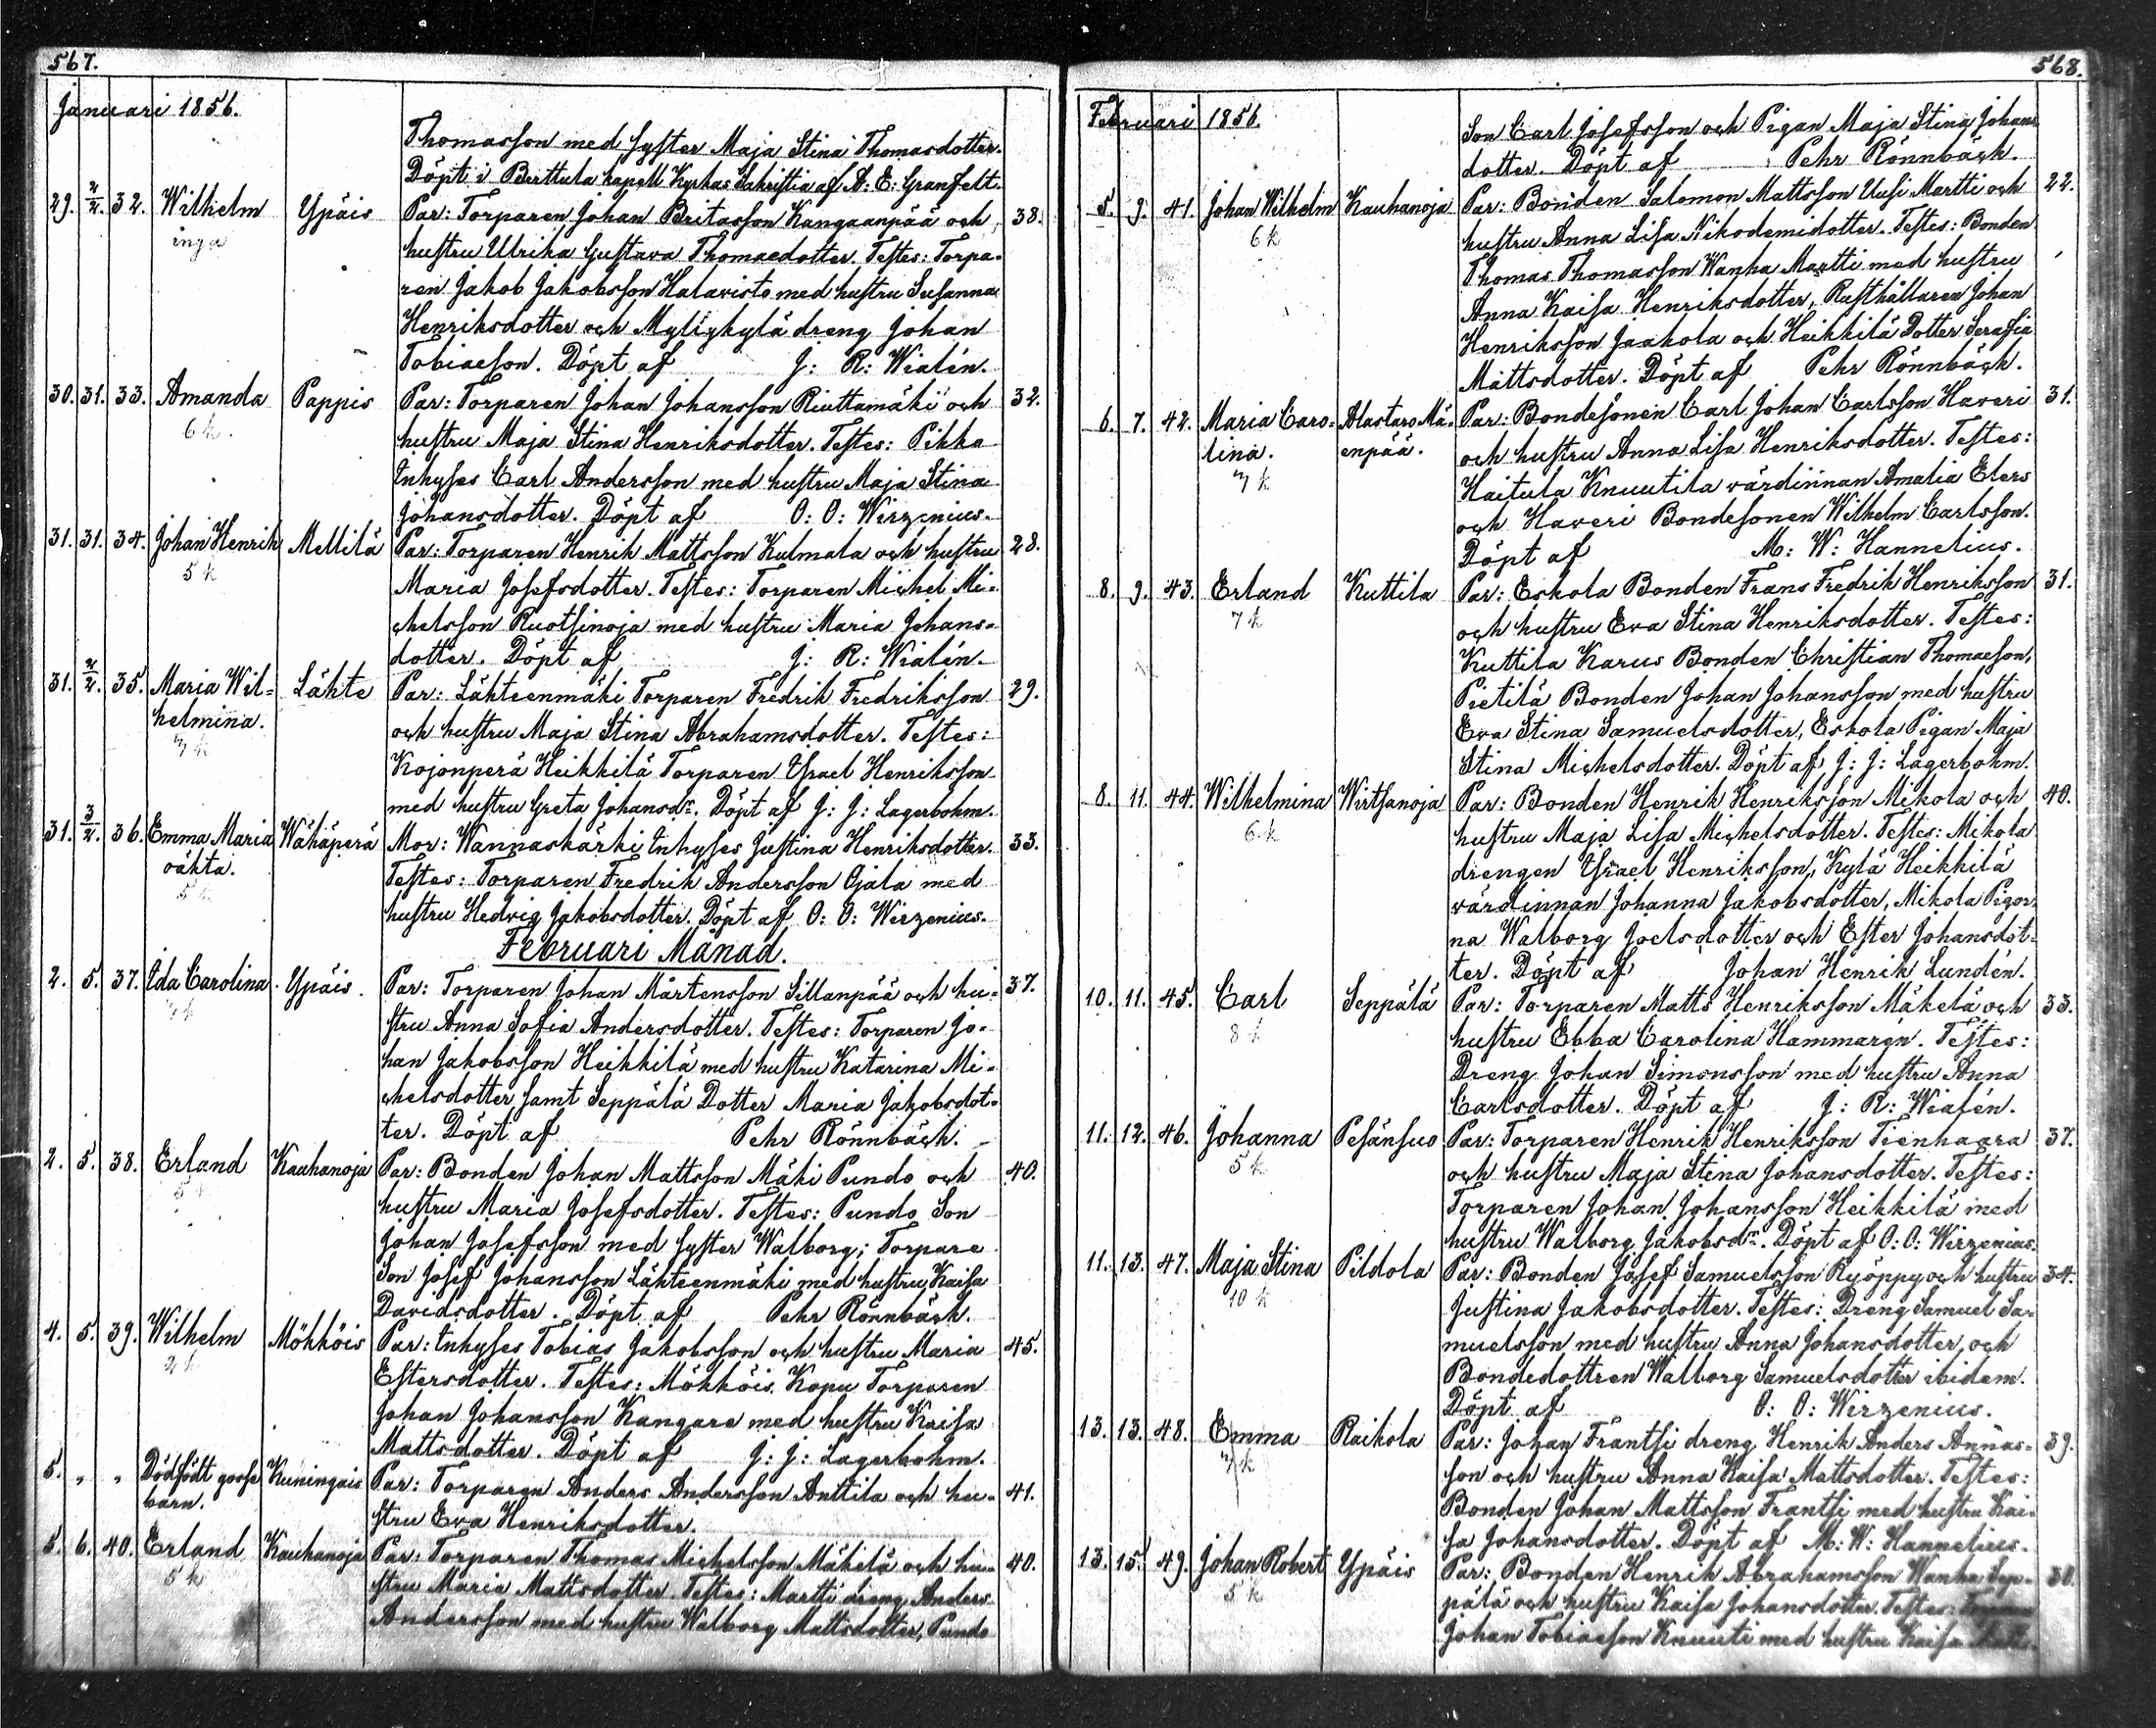 567.
Januari 1856.
Thomasson med syster Maja Stina Thomasdotter.
Döpt i Berttula kapell Kyrkas Sakristia af A: E: Granfelt.
29. 2/2. 32. Wilhelm Ypäis Par: Torparen Johan Britasson Kangaanpää och 38.
inga hustru Ulrika Gustava Thomaedotter. Testes: Torpa-
ren Jakob Jakobsson Halavisto med hustru Susanna
Henriksdotter och Myllykylä dreng Johan
Tobiaeson. Döpt af J: R: Wialén.
30. 31. 33. Amanda Pappis Par: Torparen Johan Johansson Riuttamäki och 32.
6 k. hustru Maja Stina Henriksdotter. Testes: Pikka
Inhyses Carl Andersson med hustru Maja Stina
Johansdotter. Döpt af O: O: Wirzenius.
31. 31. 34. Johan Henrik Mellilä Par: Torparen Henrik Mattsson Kulmala och hustru 28.
5 k Maria Josefsdotter. Testes: Torparen Michel Mi-
chelsson Ruotsinoja med hustru Maria Johans-
dotter. Döpt af J: R: Wialén.
31. 2/2. 35. Maria Wil- Lähte Par: Lähteenmäki Torparen Fredrik Fredriksson 29.
helmina. och hustru Maja Stina Abrahamsdotter. Testes:
7 k Kojonperä Heikkilä Torparen Israel Henriksson
med hustru Greta Johansdr. Döpt af J: J: Lagerbohm.
31. 3/2. 36. Emma Maria Wähäperä Mor: Wannaskärki Inhyses Justina Henriksdotter. 33.
oäkta. Testes: Torparen Fredrik Andersson Ojala med
5 k hustru Hedvig Jakobsdotter. Döpt af O: O: Wirzenius.
Februari Månad.
2. 5. 37. Ida Carolina Ypäis. Par: Torparen Johan Mårtensson Sillanpää och hu- 37.
7 k stru Anna Sofia Andersdotter. Testes: Torparen Jo-
han Jakobsson Heikkilä med hustru Katarina Mi-
chelsdotter samt Seppälä Dotter Maria Jakobsdot-
ter. Döpt af Pehr Rönnbäck.
2. 5. 38. Erland Kauhanoja Par: Bonden Johan Mattsson Mäki Pundo och 40.
5 k hustru Maria Josefsdotter. Testes: Pundo Son
Johan Josefsson med syster Walborg; Torpare
Son Josef Johansson Lähteenmäki med hustru Kaisa
Davidsdotter. Döpt af Pehr Rönnbäck.
4. 5. 39. Wilhelm Mökköis Par: Inhyses Tobias Jakobsson och hustru Maria 45.
2 k Estersdotter. Testes: Mökköis Kopu Torparen
Johan Johansson Kangare med hustru Kaisa
Mattsdotter. Döpt af J: J: Lagerbohm.
5. „ „ Dödfödt gosse Kuningais Par: Torparen Anders Andersson Anttila och hu- 41.
barn. stru Eva Henriksdotter.
5. 6. 40. Erland Kauhanoja Par: Torparen Thomas Michelsson Mäkilä och hu- 40.
5 k stru Maria Mattsdotter. Testes: Martti dreng Anders
Andersson med hustru Walborg Mattsdotter, Pundo
568.
Februari 1856.
Son Carl Josefsson och Pigan Maja Stina Johans
dotter. Döpt af Pehr Rönnbäck.
5. 9. 41. Johan Wilhelm Kauhanoja Par: Bonden Salomon Mattsson Uusi Martti och 22.
6 k hustru Anna Lisa Nikodemidotter. Testes: Bonden
Thomas Thomasson Wanha Martti med hustru
Anna Kaisa Henriksdotter, Rusthållaren Johan
Henriksson Jaakola och Heikkilä Dotter Serafia
Mattsdotter. Döpt af Pehr Rönnbäck.
6. 7. 42. Maria Caro- Alastaro Mä- Par: Bondesonen Carl Johan Carlsson Haveri 31.
lina. enpää. och hustru Anna Lisa Henriksdotter. Testes:
7 k Haitula Knuutila värdinnan Amalia Elers
och Haveri Bondesonen Wilhelm Carlsson.
Döpt af M: W: Hannelius.
8. 9. 43. Erland Kuttila Par: Eskola Bonden Frans Fredrik Henriksson 31.
7 k och hustru Eva Stina Henriksdotter. Testes:
Kuttila Karus Bonden Christian Thomaeson,
Pietilä Bonden Johan Johansson med hustru
Eva Stina Samuelsdotter, Eskola Pigan Maja
Stina Michelsdotter. Döpt af J: J: Lagerbohm.
8. 11. 44. Wilhelmina Wirtsanoja Par: Bonden Henrik Henriksson Mikola och 40.
6 k hustru Maja Lisa Michelsdotter. Testes: Mikola
drengen Israel Henriksson, Kylä Heikkilä
värdinnan Johanna Jakobsdotter, Mikola Pigor-
na Walborg Joelsdotter och Ester Johansdot-
ter. Döpt af Johan Henrik Lundén.
10. 11. 45. Carl Seppälä Par: Torparen Matts Henriksson Mäkelä och 33.
8 k hustru Ebba Carolina Hammarén. Testes:
Dreng Johan Simonsson med hustru Anna
Carlsdotter. Döpt af J: R: Wialén.
11. 12. 46. Johanna Pesänsuo Par: Torparen Henrik Henriksson Tienhaara 37.
5 k och hustru Maja Stina Johansdotter. Testes:
Torparen Johan Johansson Heikkilä med
hustru Walborg Jakobsdr. Döpt af O: O: Wirzenius.
11. 13. 47. Maja Stina Pildola Par: Bonden Josef Samuelsson Ryöppy och hustru 34.
10 k Justina Jakobsdotter. Testes: Dreng Samuel Sa-
muelsson med hustru Anna Johansdotter, och
Bondedottren Walborg Samuelsdotter ibidem.
Döpt af O: O: Wirzenius.
13. 13. 48. Emma Raikola Par: Johan Frantsi dreng Henrik Anders Annas- 39.
7 k son och hustru Anna Kaisa Mattsdotter. Testes:
Bonden Johan Mattsson Frantsi med hustru Kai-
sa Johansdotter. Döpt af M: W: Hannelius.
13. 15. 49. Johan Robert Ypäis Par: Bonden Henrik Abrahamsson Wanha Sep- 30.
5 k pälä och hustru Kaisa Johansdotter. Testes:
Johan Tobiaeson Knuuti med hustru Kaisa